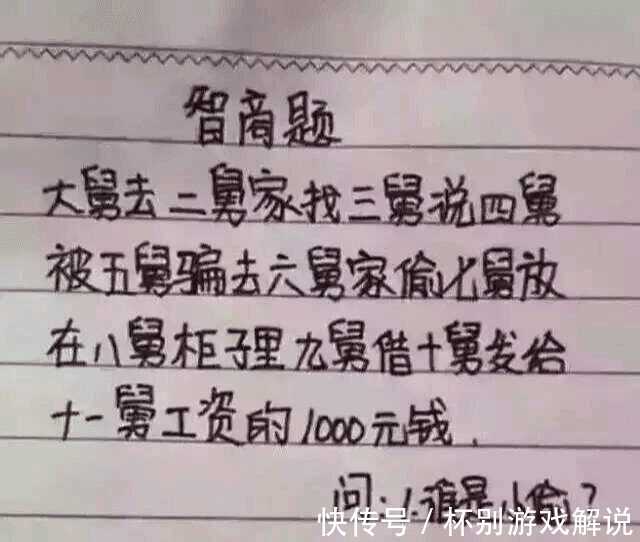 智商题
大舅去二舅家找三舅说四舅
被五舅骗去六舅家偷七舅放
在八舅柜子里九舅借十舅发给
十一舅工资的1000元钱.
问:1.谁是小偷?
快传号/杯别游戏解说